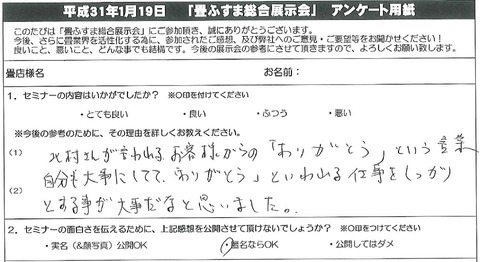 平成31年1月19日 「畳ふすま総合展示会」 アンケート用紙
このたびは「畳ふすま総合展示会」にご参加頂き、誠にありがとうございます。
今後、さらに畳業界を活性化する為に、参加されたご感想、及び弊社へのご意見・ご要望等をお聞かせください！
良いこと、悪いこと、どんな事でも結構です。今後の展示会の参考にさせて頂きますので、よろしくお願い致します。
畳店様名 お名前：
1．セミナーの内容はいかがでしたか？ ※○印を付けてください
・とても良い ・良い ・ふつう ・悪い
※今後の参考のために、その理由を詳しくお教えください。
(1) 北村さんが言われる、お客様からの「ありがとう」という言葉
自分も大事にしてて「ありがとう」といわれる仕事をしっかり
(2) とする事が大事だなと思いました。
2．セミナーの面白さを伝えるために、上記感想を公開させて頂けないでしょうか？ ※○印をつけてください
・実名（&顔写真）公開OK ・匿名ならOK ・公開してはダメ